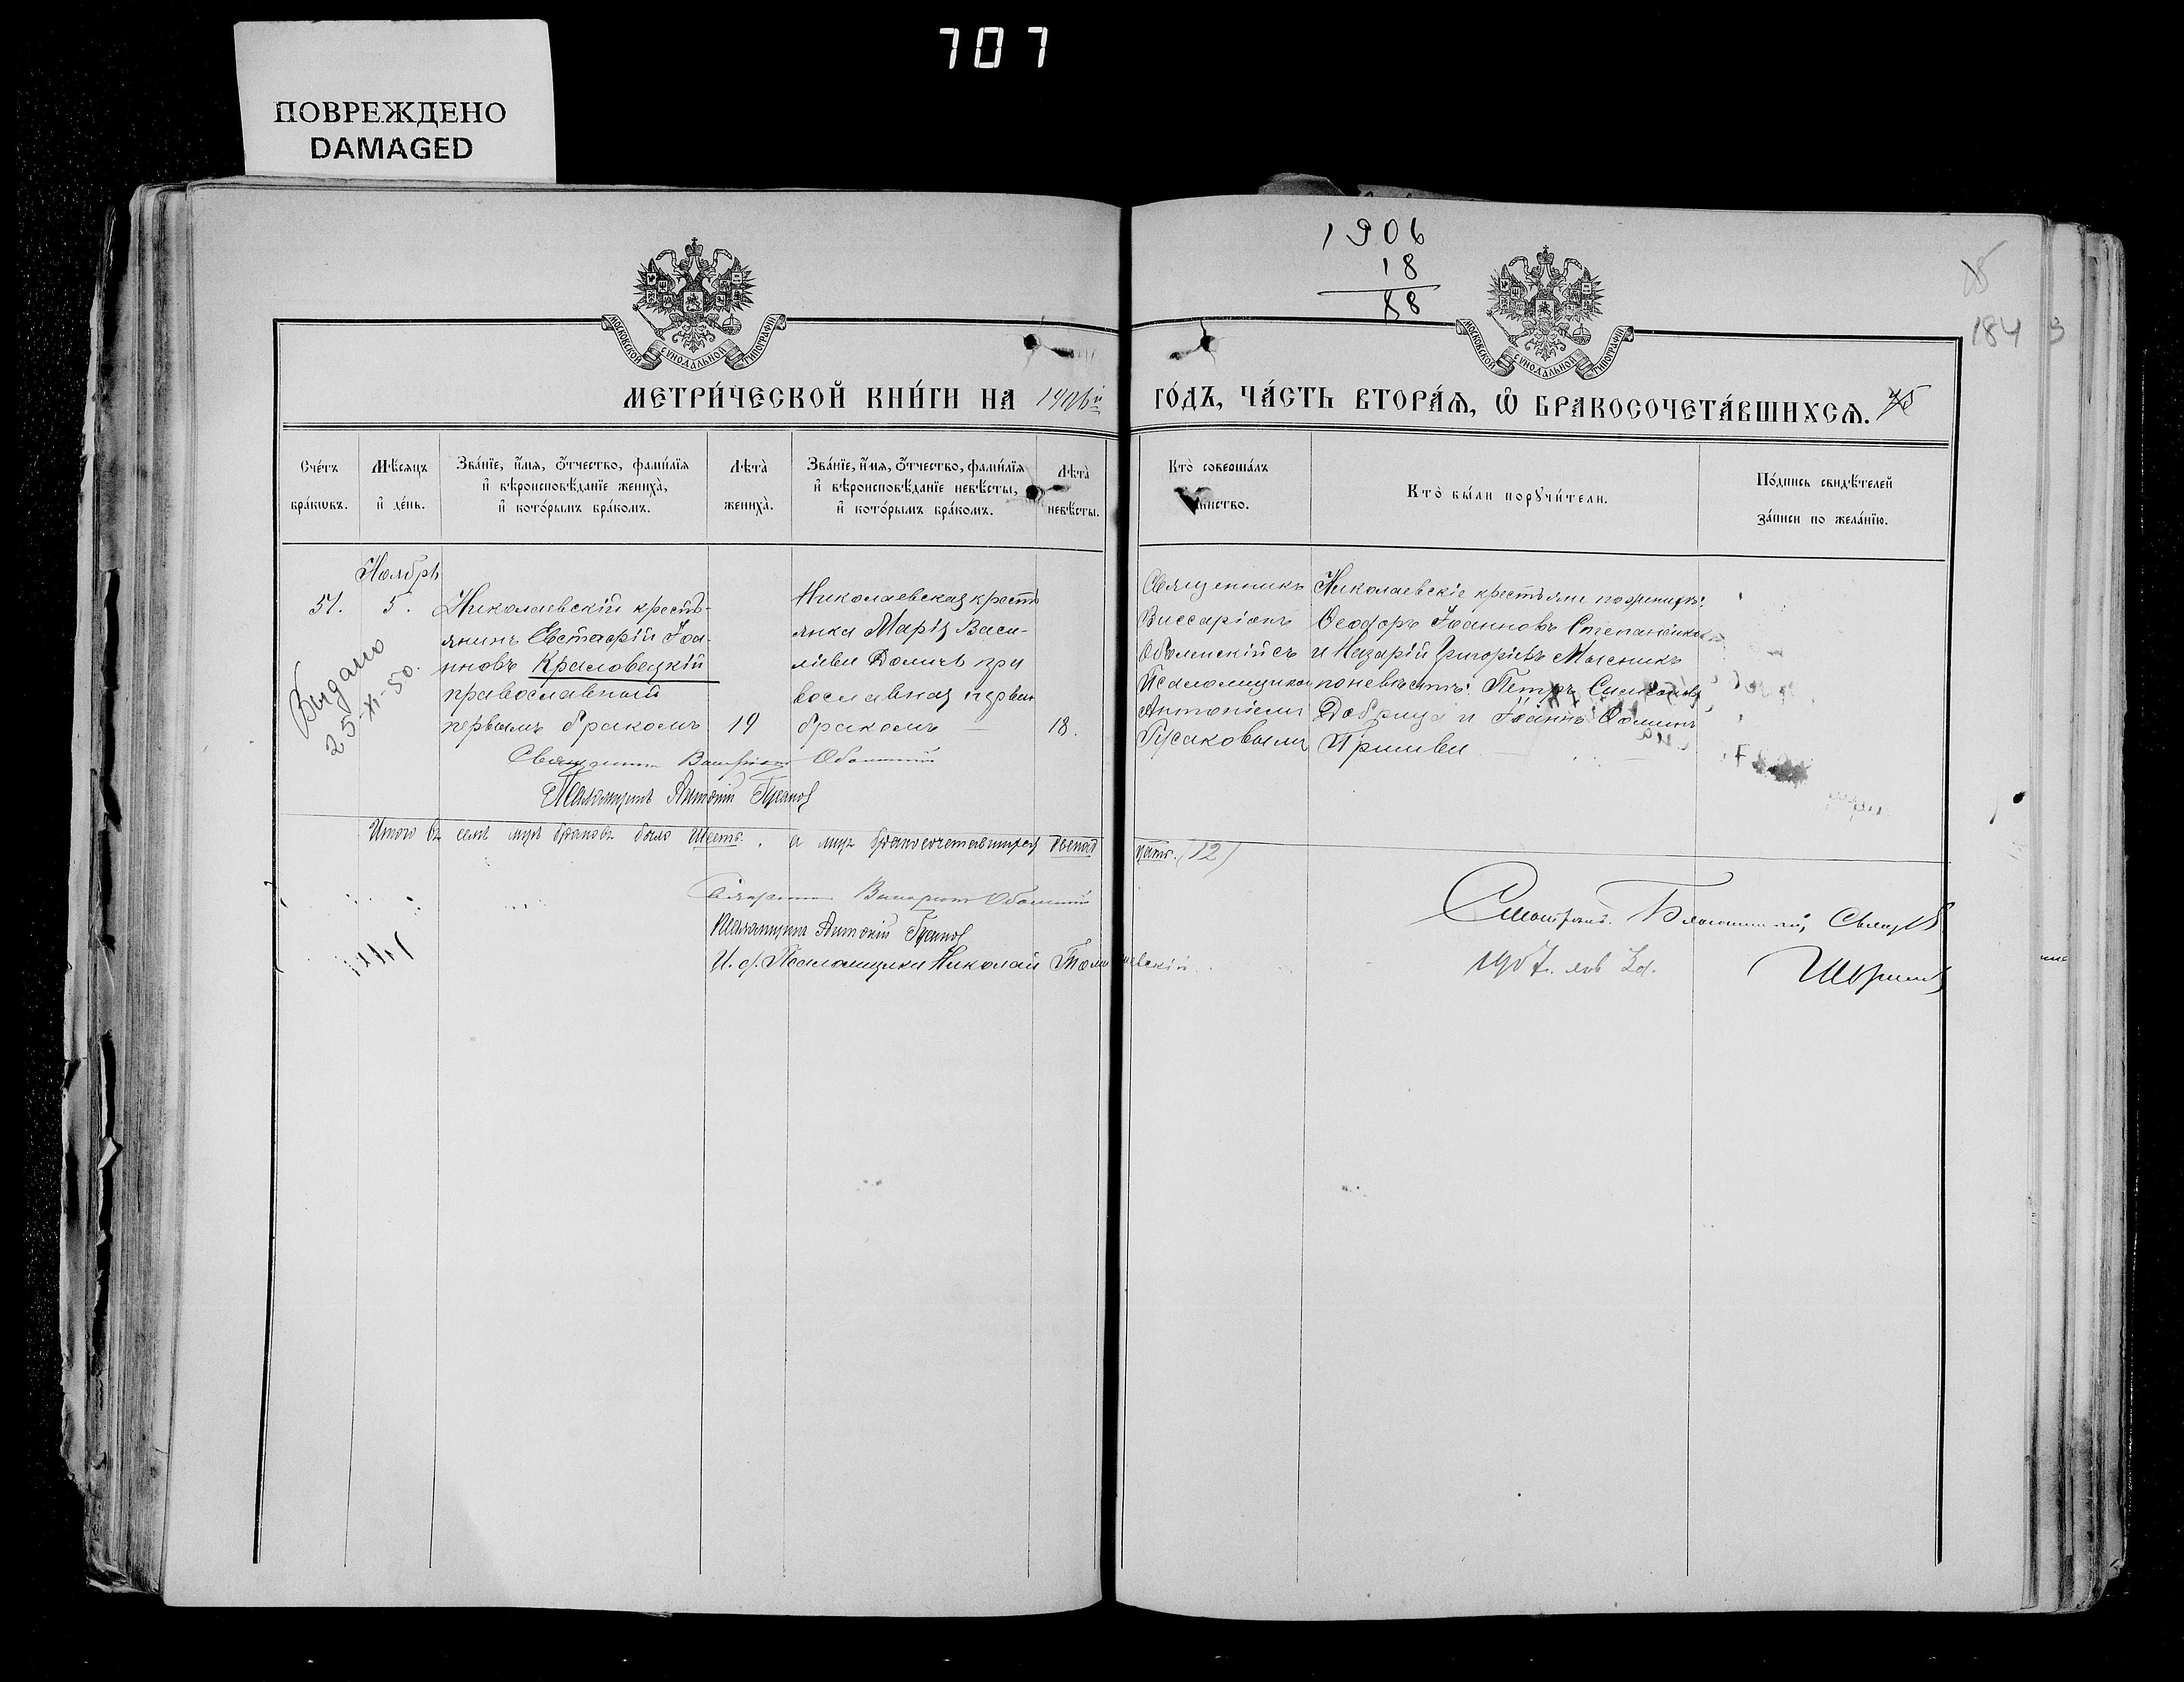 707
ПОВРЕЖДЕНО
DAMAGED
1906
18
88
184
МОСКОВСКОЙ СИНОДАЛЬНОЙ ТИПОГРАФІИ
МОСКОВСКОЙ СИНОДАЛЬНОЙ ТИПОГРАФІИ
МЕТРИ́ЧЕСКОЙ КНИ́ГИ НА 1906й ГО́ДЪ, ЧА́СТЬ ВТОРА́Ѧ, Ѡ҆ БРАКОСОЧЕТА́ВШИХСѦ.
Сче́тъ
бра́кѡвъ.
Мѣ́сѧцъ
и҆ де́нь.
Зва́нїе, и҆́мѧ, ѻ҆́тчество, фами́лїѧ
и҆ вѣроисповѣ́данїе жениха̀,
и҆ кото́рымъ бра́комъ.
Лѣ́та̀
жениха̀.
Зва́нїе, и҆́мѧ, ѻ҆́тчество, фами́лїѧ
и҆ вѣроисповѣ́данїе невѣ́сты,
и҆ кото́рымъ бра́комъ.
Лѣ́та̀
невѣ́сты.
Кто̀ соверша́лъ
Кто̀ бы́ли порꙋчи́тели.
По́дпись свидѣ́телей
за́писи по жела́нїю.
Ноябрь
51.
5.
Выдано
25-XI-50.
Николаевскій кресть-
янинъ Евстафій Іоа-
нновъ Красовецкій
православный
первымъ бракомъ
19
Николаевская кресть
янка Марія Васи-
ліева Доличъ пра
вославная первым
бракомъ
18.
Священникъ
Виссаріонъ
Оболенскій съ
Псаломщиком
Антоніемъ
Гусаковымъ
Николаевскіе крестьяне по женихѣ:
Ѳеодоръ Іоанновъ Степаненко
и Назарій Григорьевъ Мясникъ
по невѣстѣ: Петръ Симеоновъ
Добрица и Іоаннъ Ѳоминъ
Пришва
Священникъ Виссаріонъ Оболенскій
Псаломщикъ Антоній Гусаковъ
Итого въ семъ мцѣ браковъ было шесть, а лицъ бракосочетавшихся двенад
цать. (12)
Священникъ Виссаріонъ Оболенскій
Псаломщикъ Антоній Гусаковъ
И. д. Псаломщика Николай
1907.